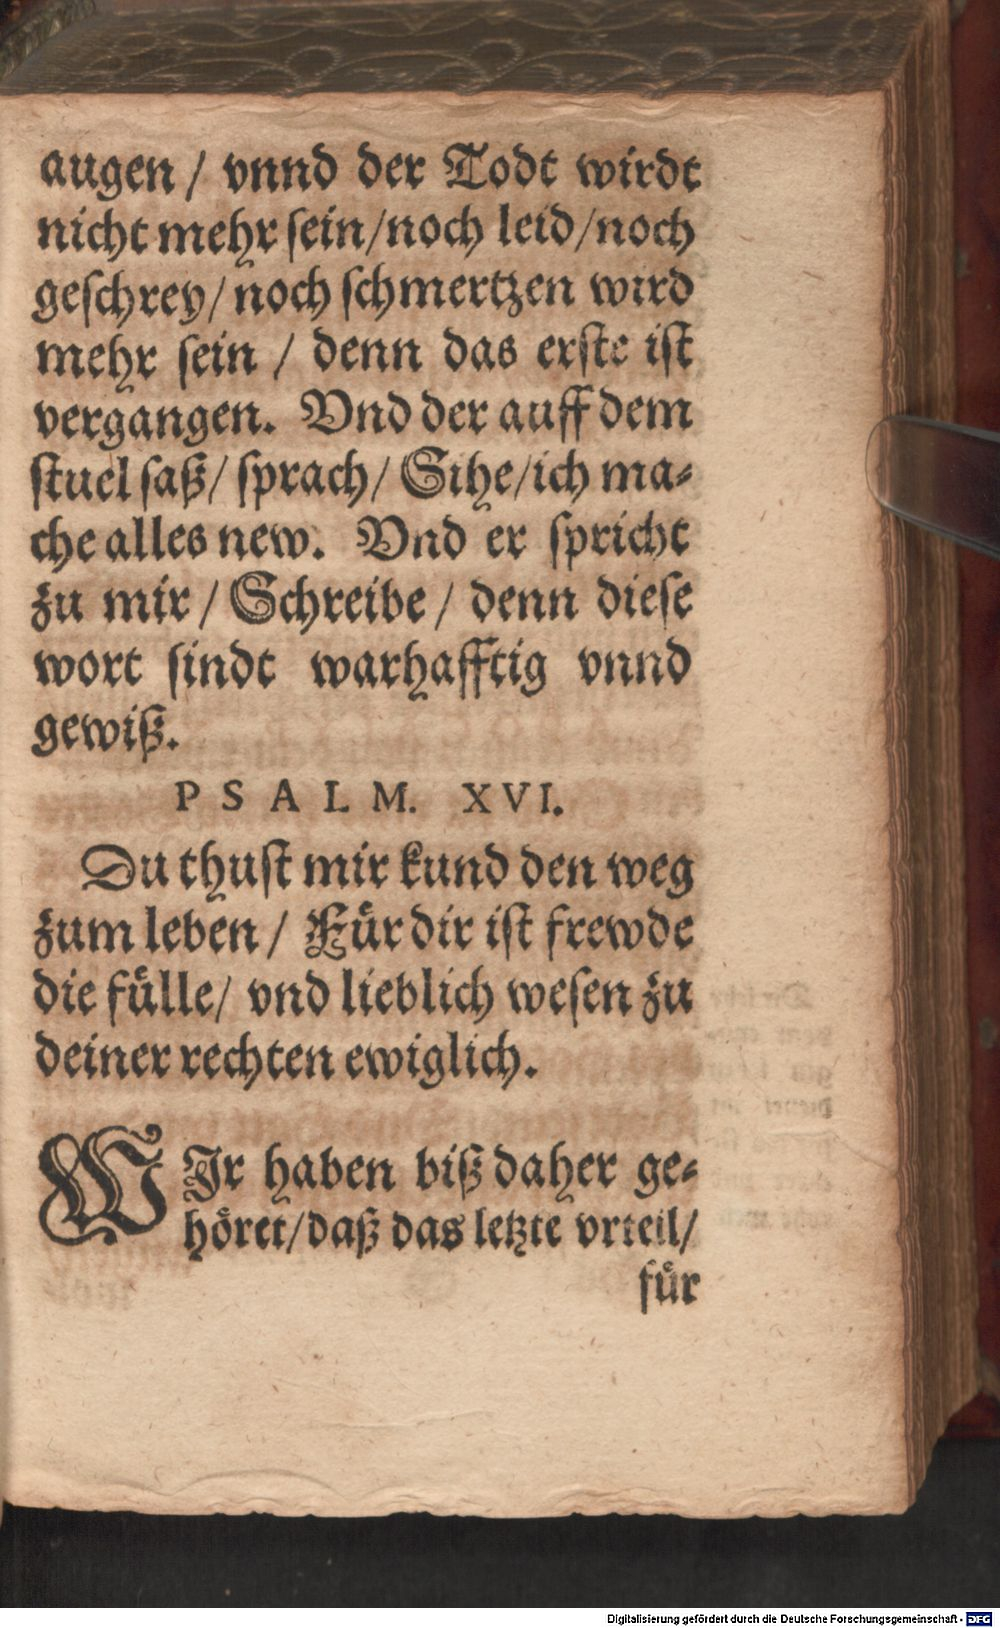 augen / vnnd der Todt wirdt
nicht mehr sein/noch leid/noch
geschrey/ noch schmertzen wird
mehr sein / denn das erste ist
vergangen. Vnd der auff dem
stuel saß/ sprach/ Sihe/ich ma-
che alles new. Vnd er spricht
zu mir / Schreibe / denn diese
wort sindt warhafftig vnnd
gewiß.
PSALM. XVI.
Du thust mir kund den weg
zum leben / Für dir ist frewde
die fülle/ vnd lieblich wesen zu
deiner rechten ewiglich.
WJr haben biß daher ge-
höret/daß das letzte vrteil/
für
Digitalisierung gefördert durch die Deutsche Forschungsgemeinschaft - DFG